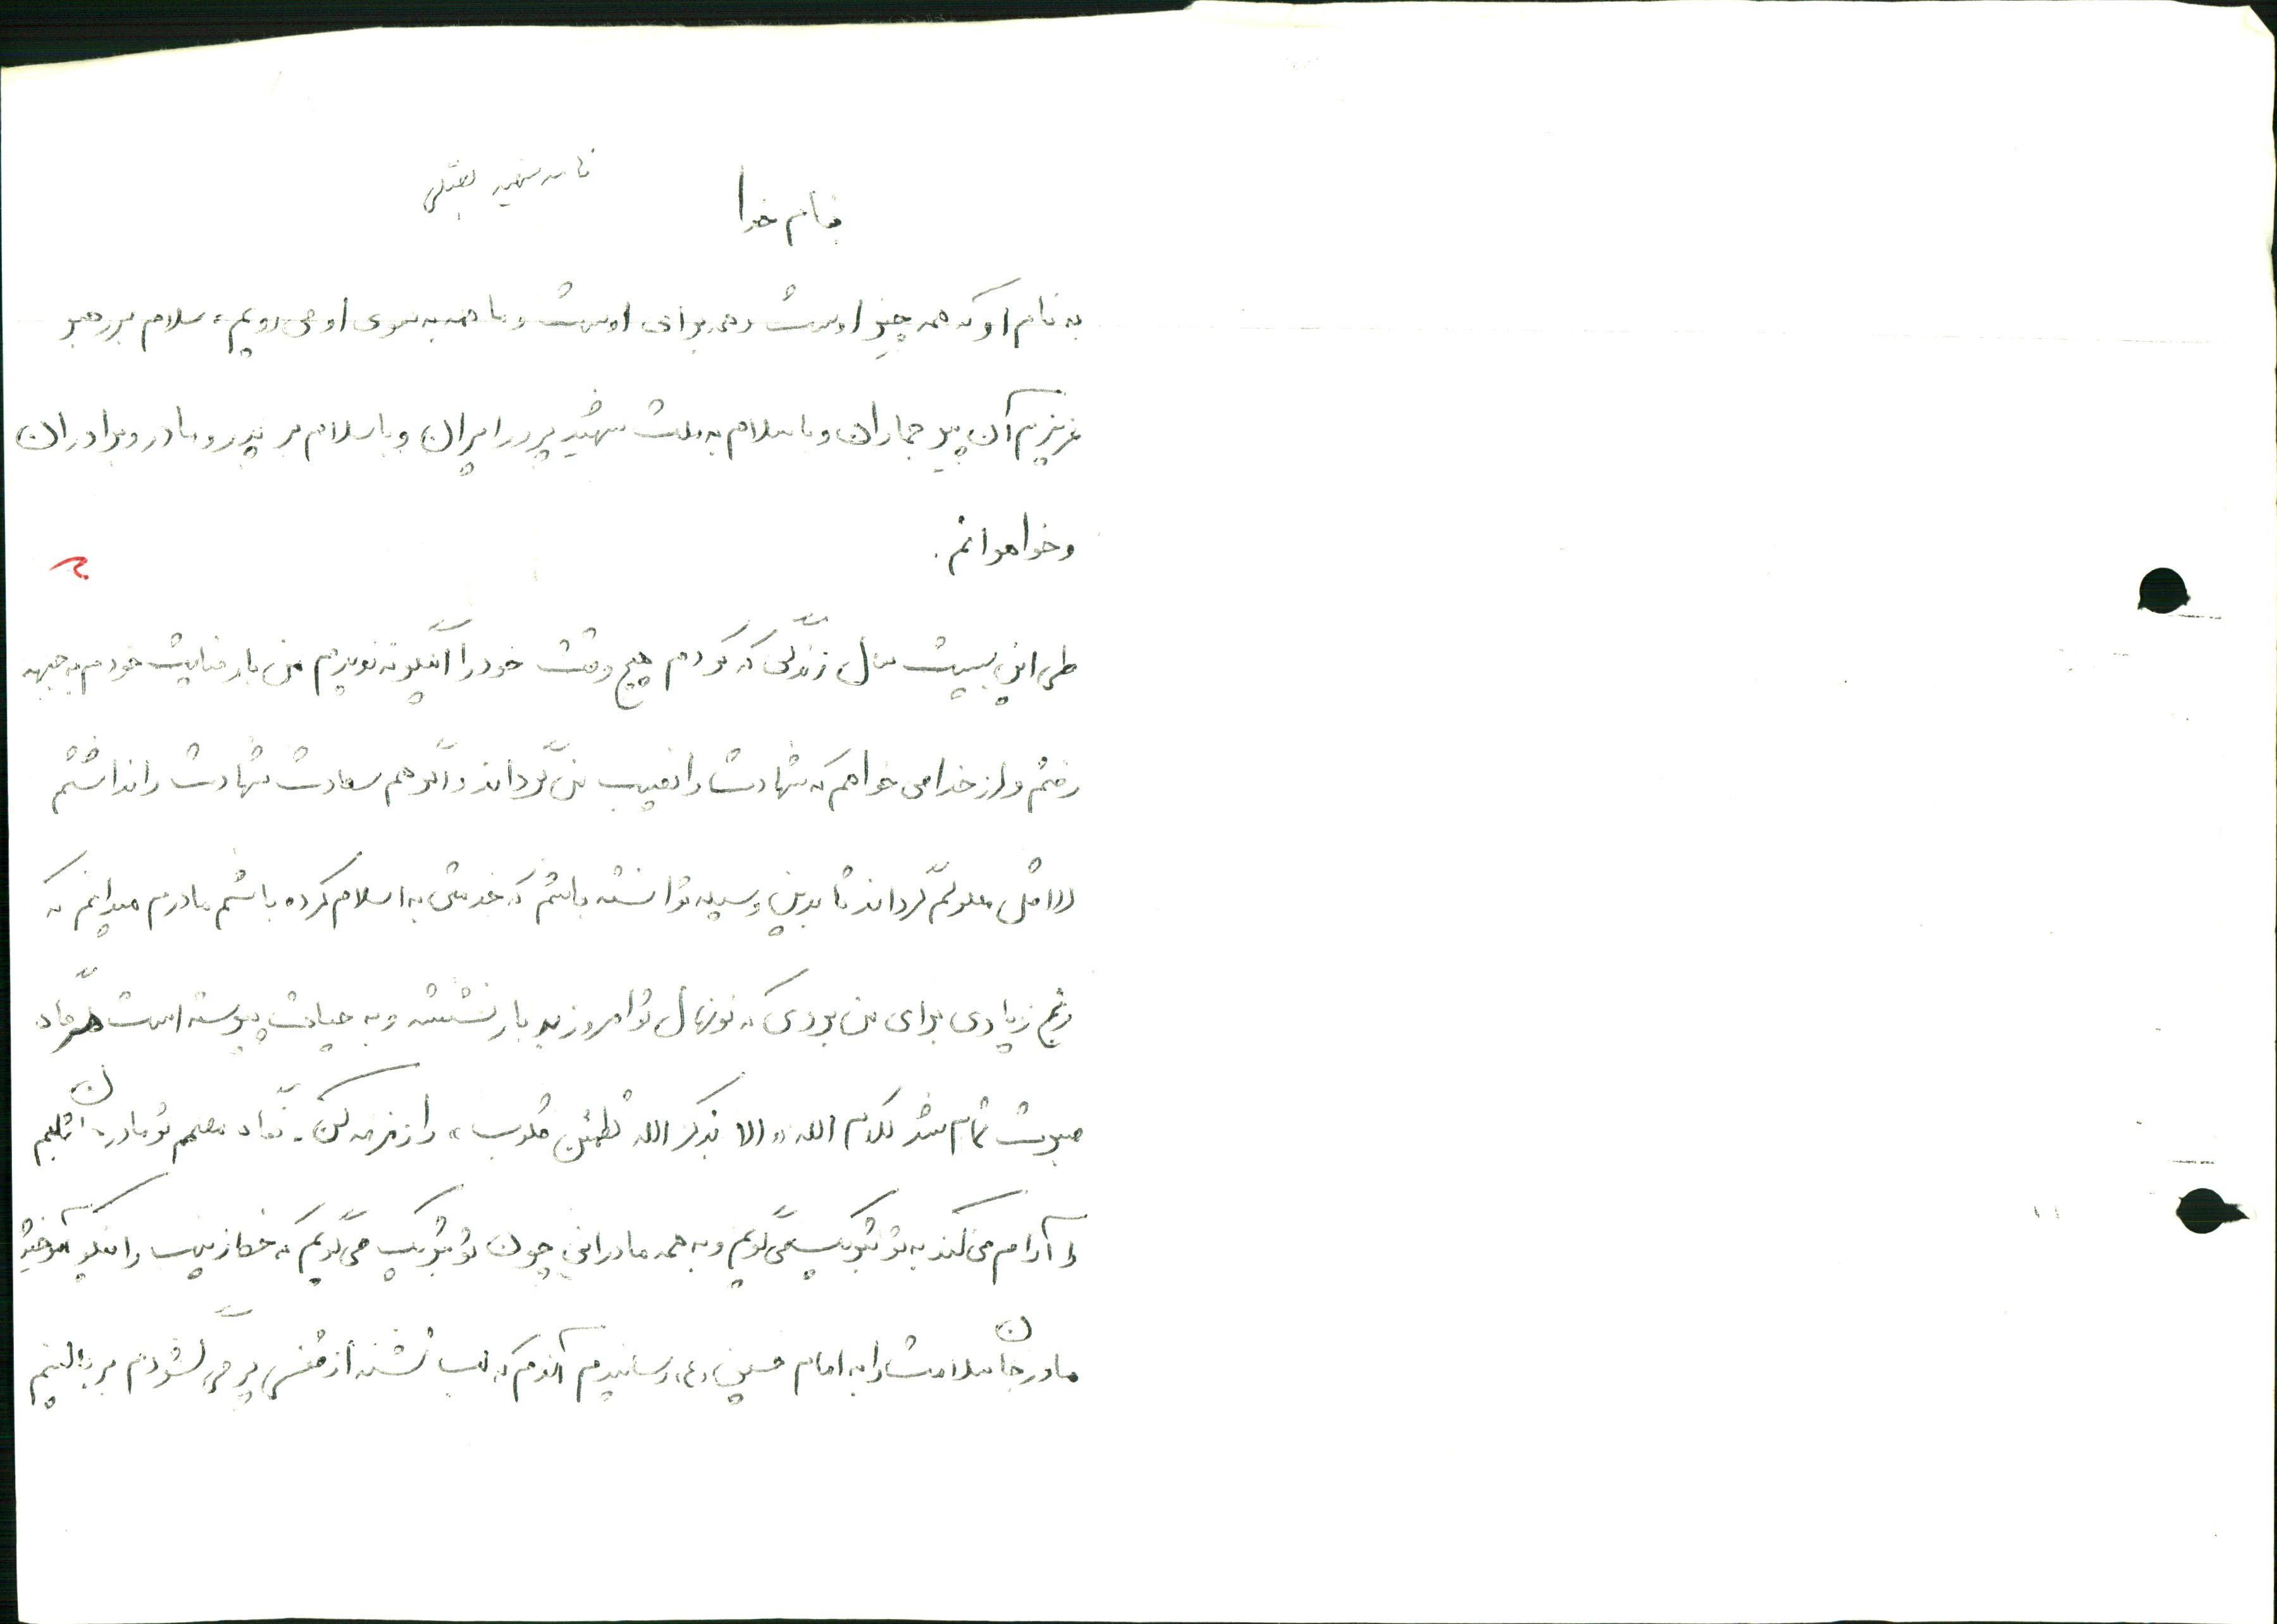 نامه شهید
بنام خدا
به نام او که همه چیز اوست و همه برای اوست و ما همه به سوی او می رویم، سلام بر رهبر
عزیزم آن پیر جماران و با سلام به ملت شهید پرور ایران و با سلام بر پدر و مادر و برادران
و خواهرانم .
طی این بیست سال زندگی که کردم هیچ وقت خود را اینگونه ندیدم من با رضایت خودم به جبهه
رفتم و از خدا می خواهم که شهادت را نصیب من گرداند و اگر هم سعادت شهادت را نداشتم
لااقل معلولم گرداند تا بدین وسیله توانسته باشم که خدمتی به اسلام کرده باشم مادرم میدانم که
رنج زیادی برای من بردی که نونهال تو امروز به بار نشسته و به حیات پیوسته است هرگاه
صبرت تمام شد کلام الله « الا بذکر الله تطمئن قلوب » را زمزمه کن . نگاه مصمم تو مادر
را آرام می کند به تو تبریک می گویم و به همه مادرانی چون تو تبریک می گویم که خط زینب را نیکو آموختید
مادر جان سلامت را به امام حسین (ع) رسانیدم آندم که لب تشنه از قفس پر می گشودم بر بالینم